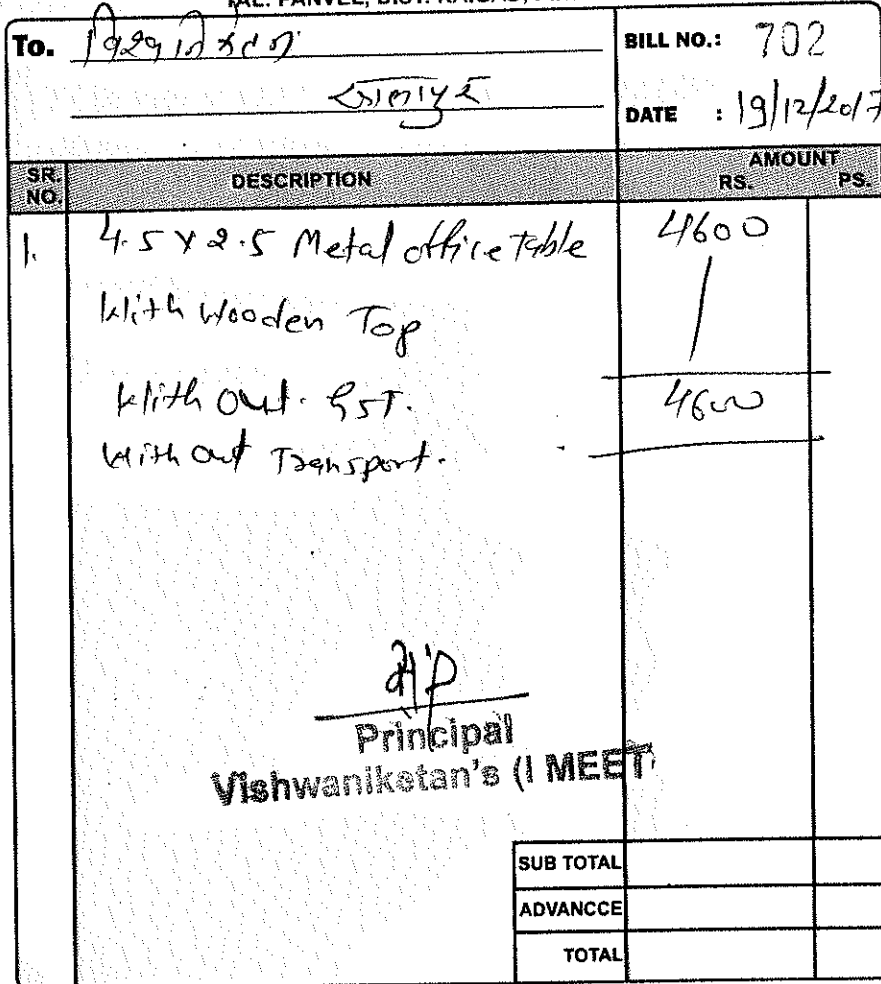 TAL. PANVEL, DIST. RAIGAD,
To. विश्वनिकेतन
BILL NO.: 702
DATE : 19/12/2017
SR. NO. DESCRIPTION AMOUNT RS. PS.
1. 4.5 x 2.5 Metal office Table 4600
With Wooden Top
With Out. GST. 4600
With Out Transport.
Principal
Vishwaniketan's (I MEET
SUB TOTAL
ADVANCCE
TOTAL